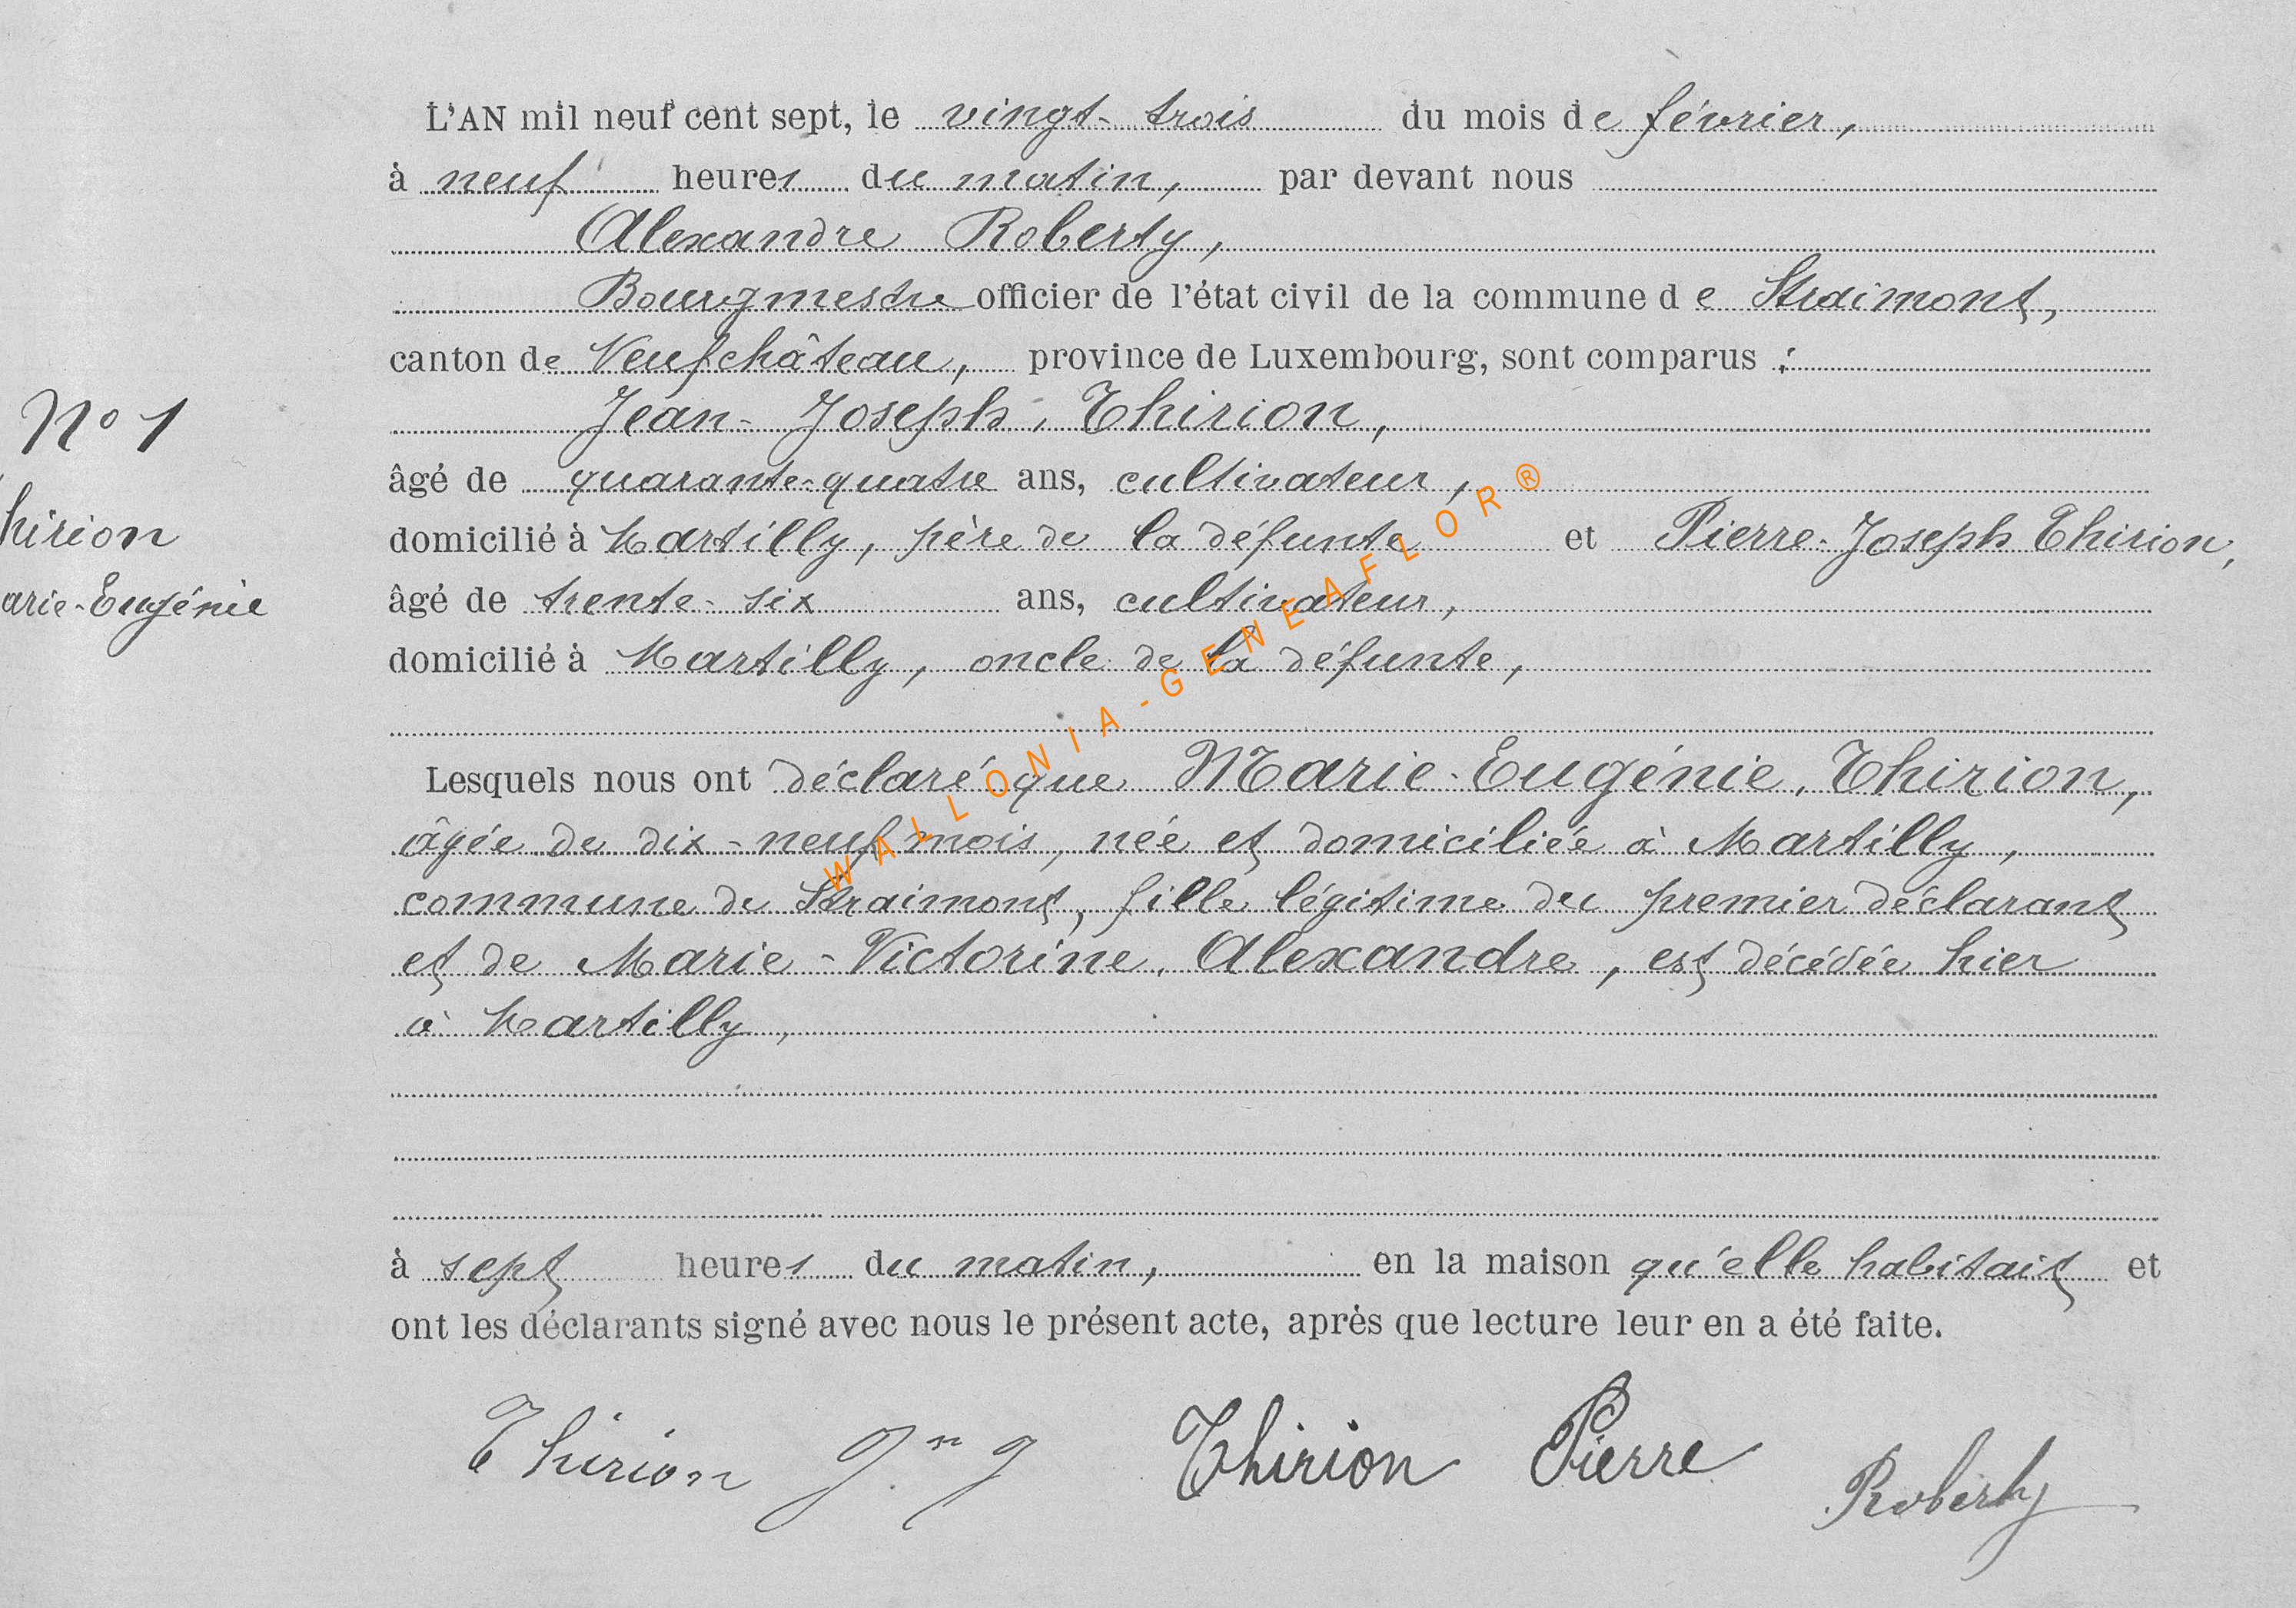 L'AN mil neuf cent sept, le vingt-trois du mois de février,
à neuf heures du matin, par devant nous
Alexandre Roberty,
Bourgmestre officier de l'état civil de la commune de Straimont,
canton de Neufchâteau, province de Luxembourg, sont comparus :
Jean-Joseph, Thirion,
âgé de quarante-quatre ans, cultivateur,
domicilié à Martilly, père de la défunte et Pierre-Joseph Thirion,
âgé de trente-six ans, cultivateur,
domicilié à Martilly, oncle de la défunte,
Lesquels nous ont déclaré que Marie-Eugénie, Thirion,
âgée de dix-neuf mois, née et domiciliée à Martilly,
commune de Straimont, fille légitime du premier déclarant
et de Marie-Victorine, Alexandre, est décédée hier
à Martilly,
à sept heures du matin, en la maison qu'elle habitait et
ont les déclarants signé avec nous le présent acte, après que lecture leur en a été faite.
Thirion Jn J Thirion Pierre Roberty
No 1
hirion
arie-Eugénie
WALLONIA-GENEAFLOR®